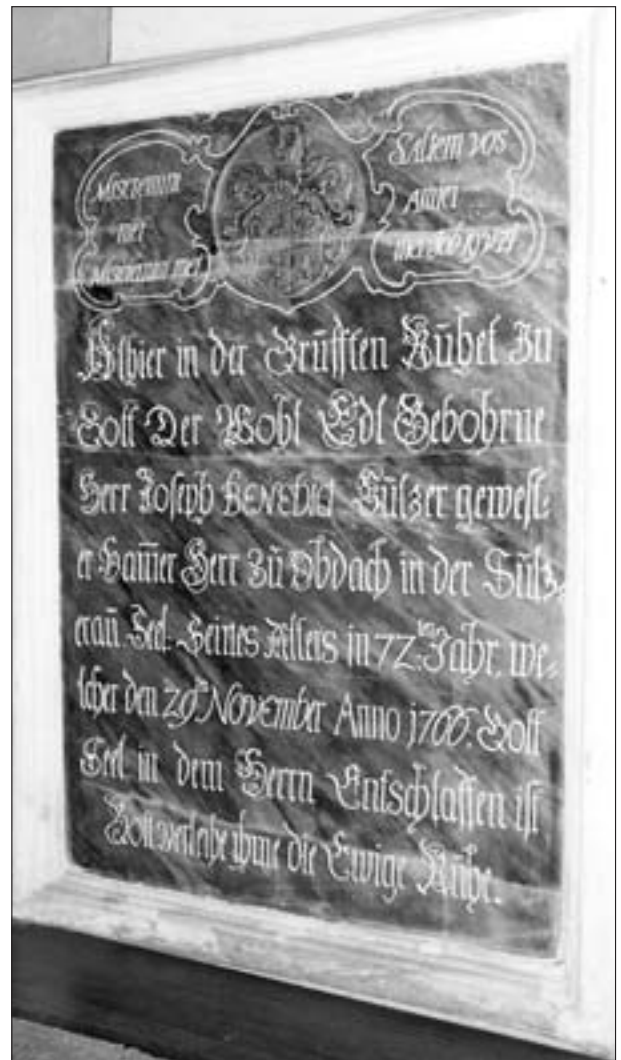 Miseremini
mei
Miseremini mei
Saltem vos
Amici
mei Job 19 v 21
Alhier in der Grufften Rühet In
Gott Der Wohl Edl Gebohrne
Herr Joseph BENEDict Sulzer gewest:
er Ham̄er Herr Zu Obdach in der Sulz:
erau. Seel. Seines Alters in 72.ten Jahr, we:
lcher den 29ten November Anno 1766. Gott
Seel in dem Herrn Entschlaffen ist
Gott verleihe ihme die Ewige Ruhe.